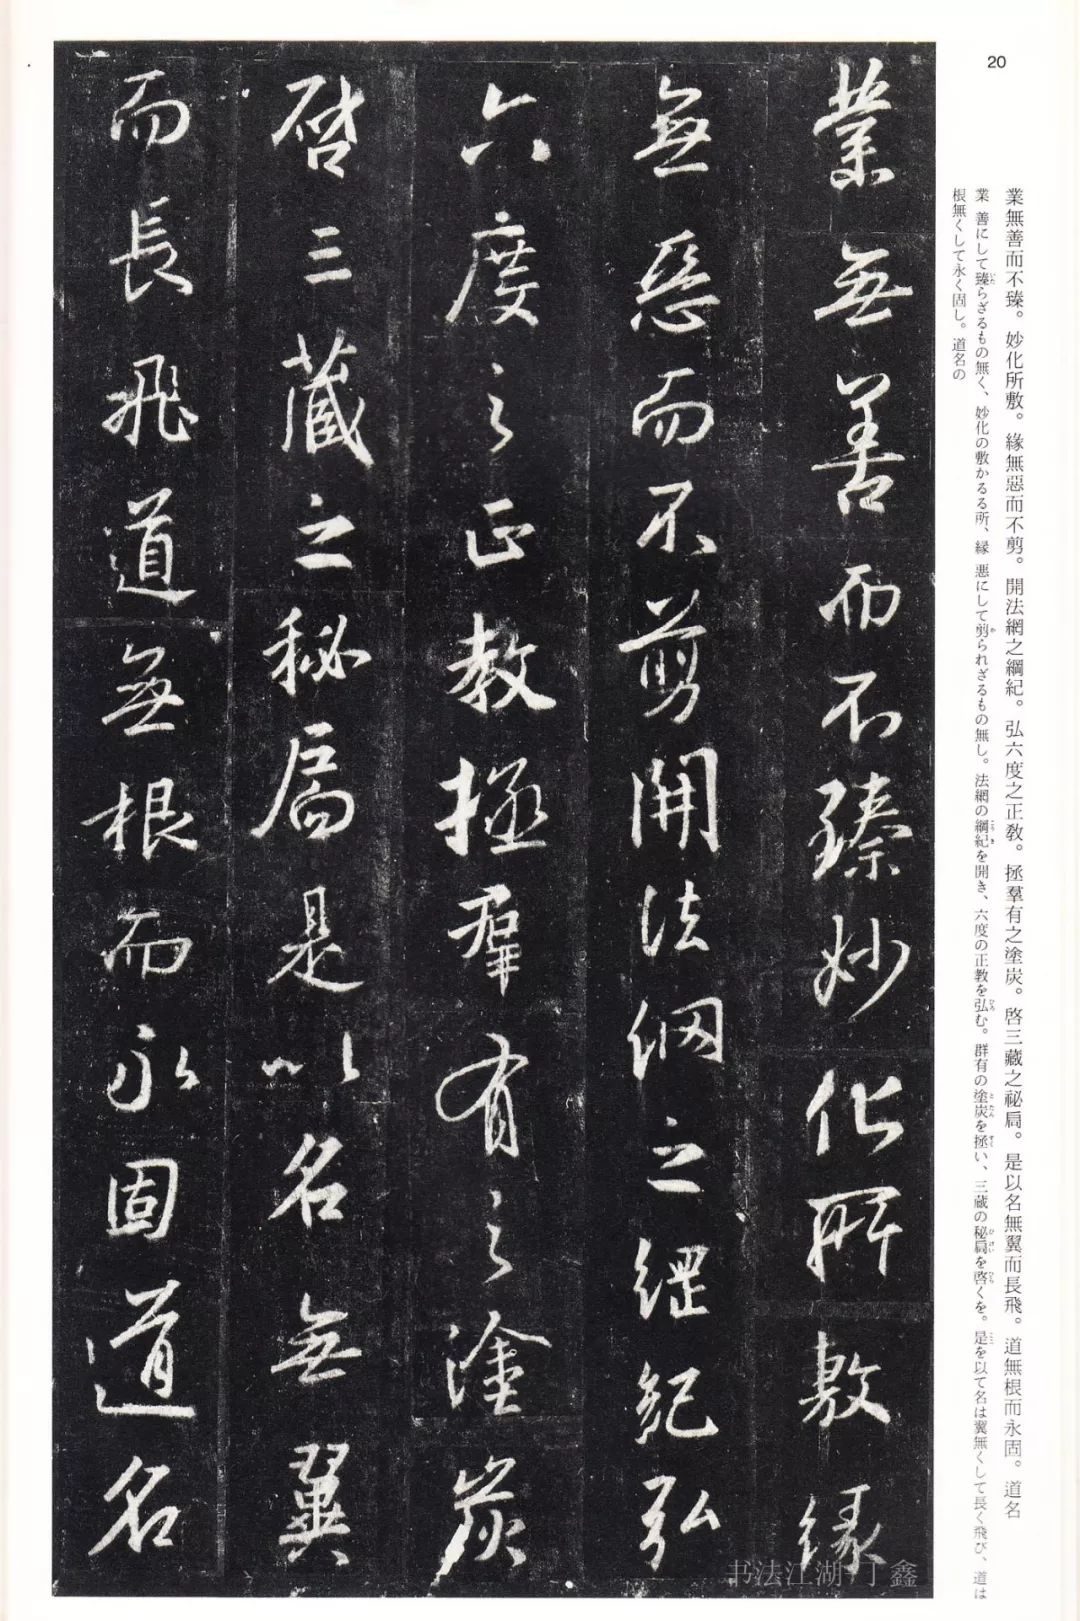 20
業無善而不臻。妙化所敷。緣無惡而不剪。開法網之綱紀。弘六度之正教。拯羣有之塗炭。啓三藏之祕扃。是以名無翼而長飛。道無根而永固。道名
業 善にして臻らざるもの無く、妙化の敷かるる所、縁 悪にして剪られざるもの無し。法網の綱紀を開き、六度の正教を弘む。群有の塗炭を拯い、三蔵の秘扃を啓くを。是を以て名は翼無くして長く飛び、道は
根無くして永く固し。道名の
業無善而不臻妙化所敷緣
無惡而不剪開法網之綱紀弘
六度之正教拯羣有之塗炭
啓三藏之秘扃是以名無翼
而長飛道無根而永固道名
书法江湖 丁鑫